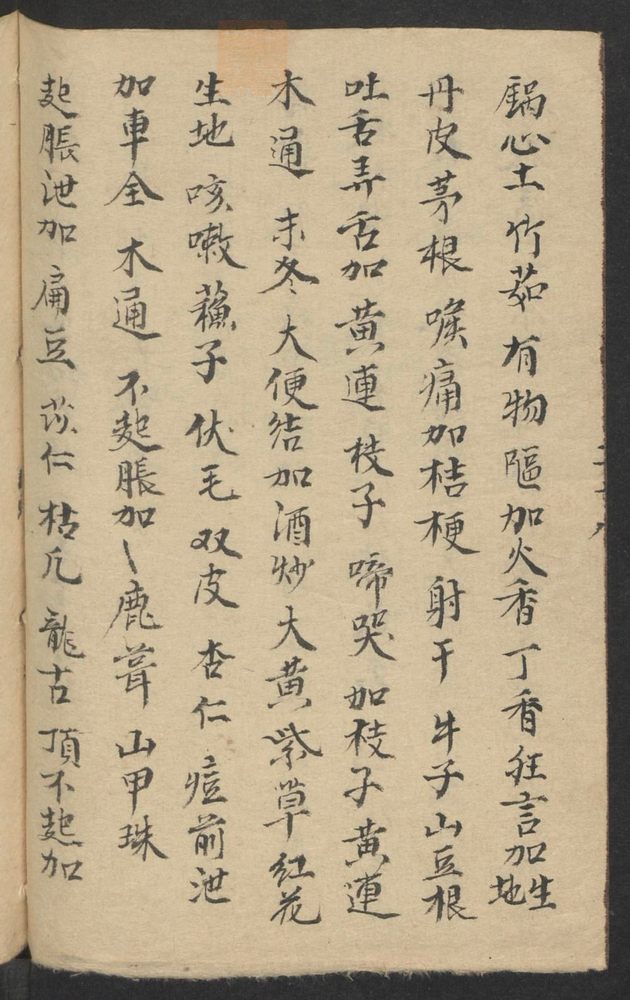 鍋心土竹茹有物嘔加火香丁香狂言加生地
丹皮茅根喉痛加桔梗射干牛子山豆根
吐舌弄舌加黃連枝子啼哭加枝子黃連
木通麦冬大便结加酒炒大黃紫草红花
生地咳嗽蘓子伏毛双皮杏仁痘前泄
加車全木通不起脹加鹿茸山甲珠
起脹泄加扁豆苡仁枯凡龍古頂不起加